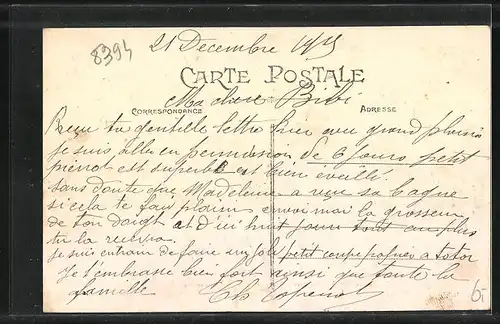 8394
21 Decembre 1915
CARTE POSTALE
Ma chere Bibi
CORRESPONDANCE
ADRESSE
Recu ta gentille lettre hier avec grand plaisir
je suis allé en permission de 6 jours petit
pierrot est superbe et bien éveillé
sans doute que Madeleine a vue sa bague
si cela te fais plaisir envoi moi la grosseur
de ton doigt et d'ici huit jours tout au plus
tu la recevra
je suis entrain de faire un joli petit coupe papier a totor
Je t'embrasse bien fort ainsi que toute la
famille
Ch
6.-